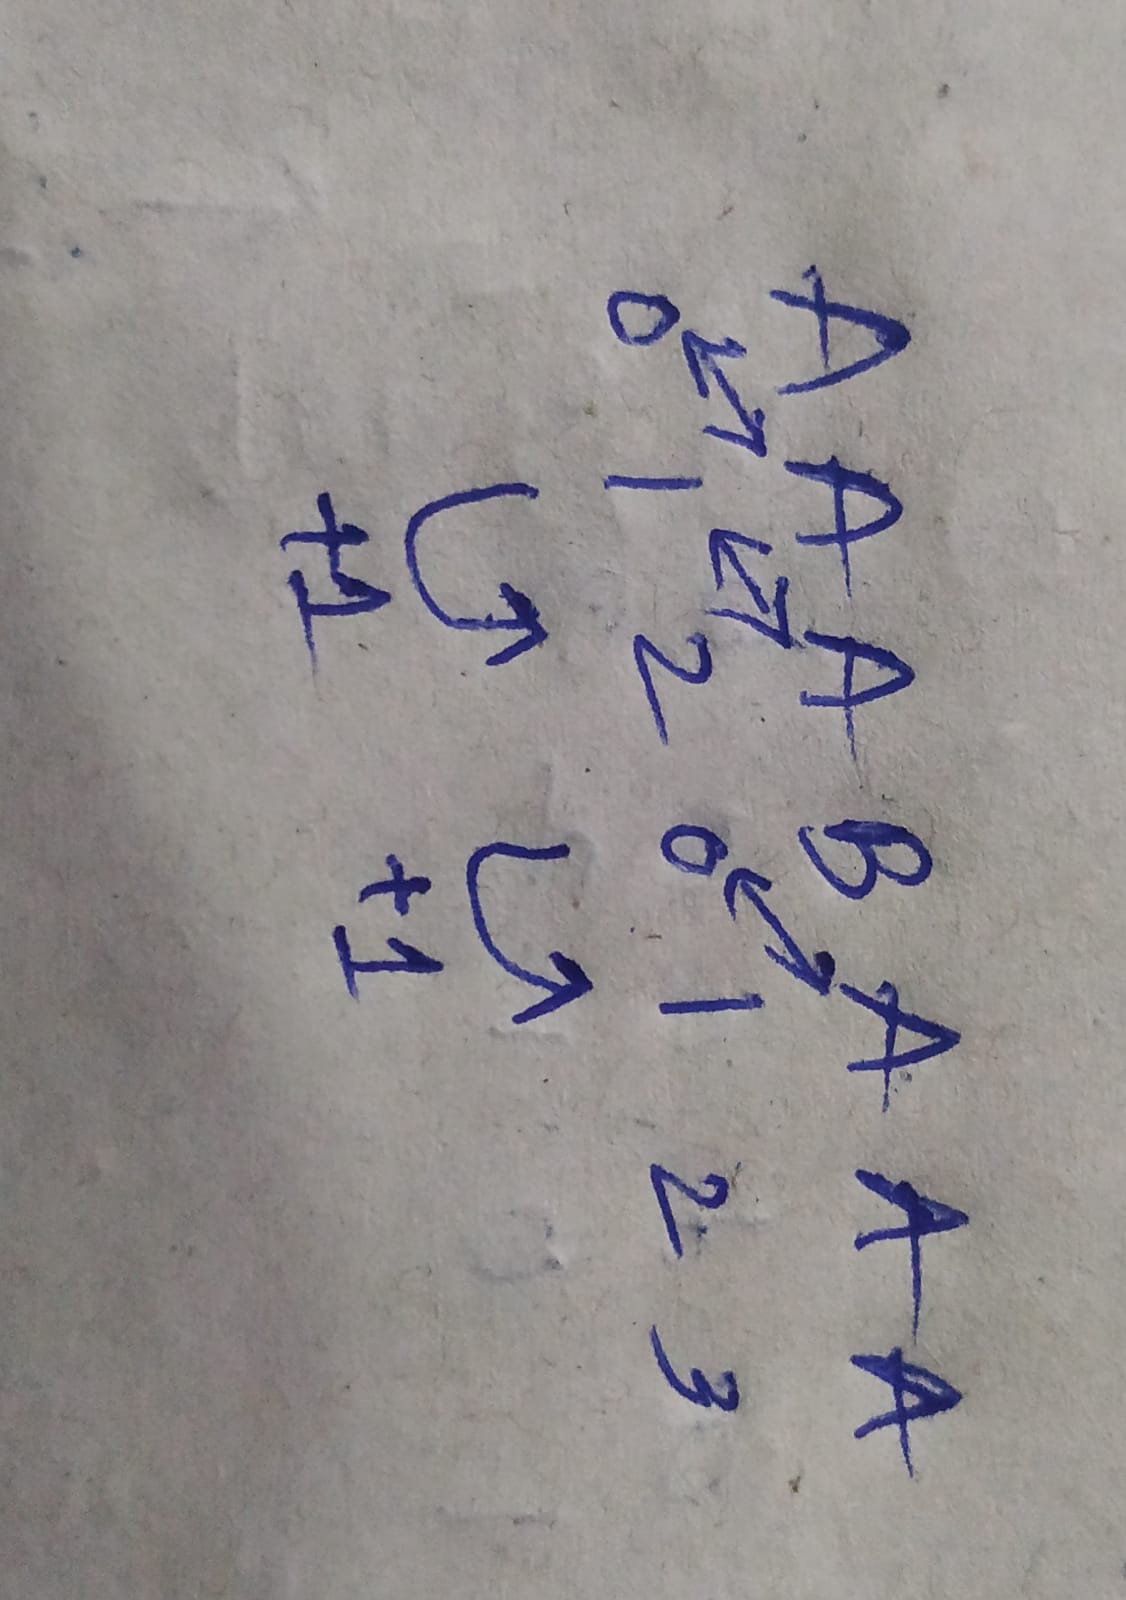 A A A B A A A
0 1 2 0 1 2 3
+1 +1